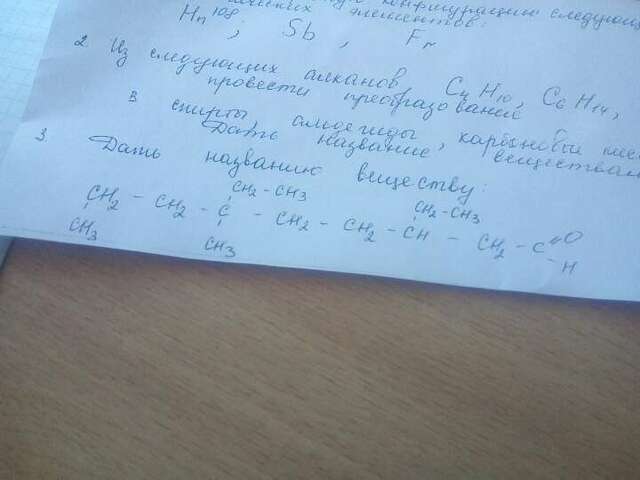 конфигурацию следующих
элементов:
Hn 108 ; Sb , Fr
2 Из следующих алканов C4H10, C6H14,
провести преобразований
в спирты, альдегиды, карбоновые
Дать название веществам
3. Дать название веществу:
CH2-CH3 CH2-CH3
CH2 - CH2 - C - CH2 - CH2 - CH - CH2 - C =O
CH3 CH3 - H